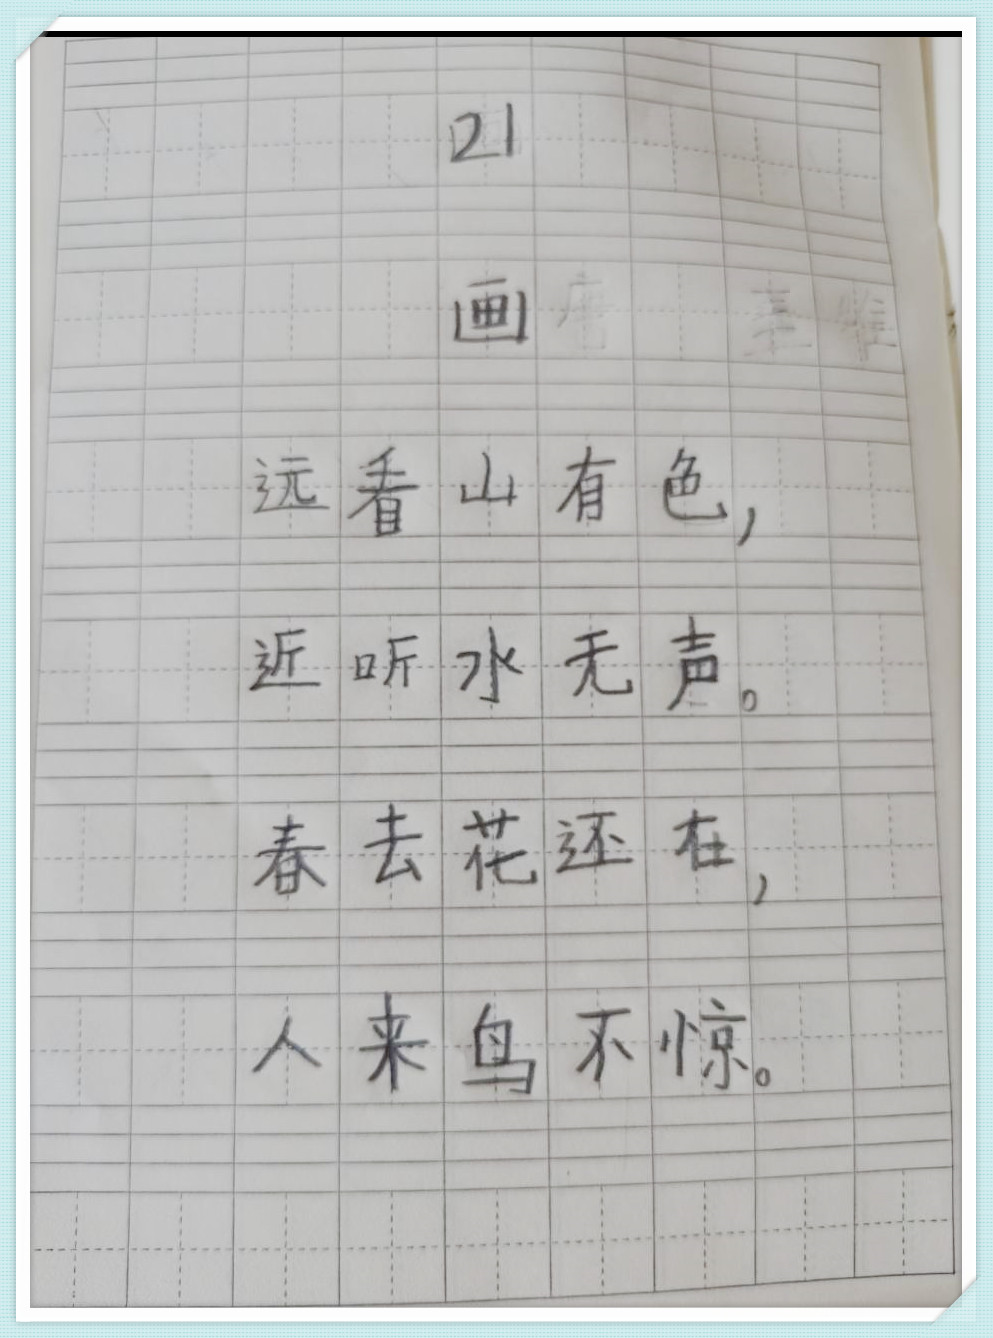 21
画
远看山有色，
近听水无声。
春去花还在，
人来鸟不惊。